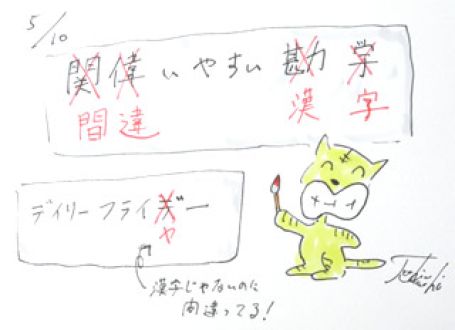 5/10
関偉いやすい勘学
間違 漢字
デイリーフライギー
ヤ
漢字じゃないのに
間違ってる!